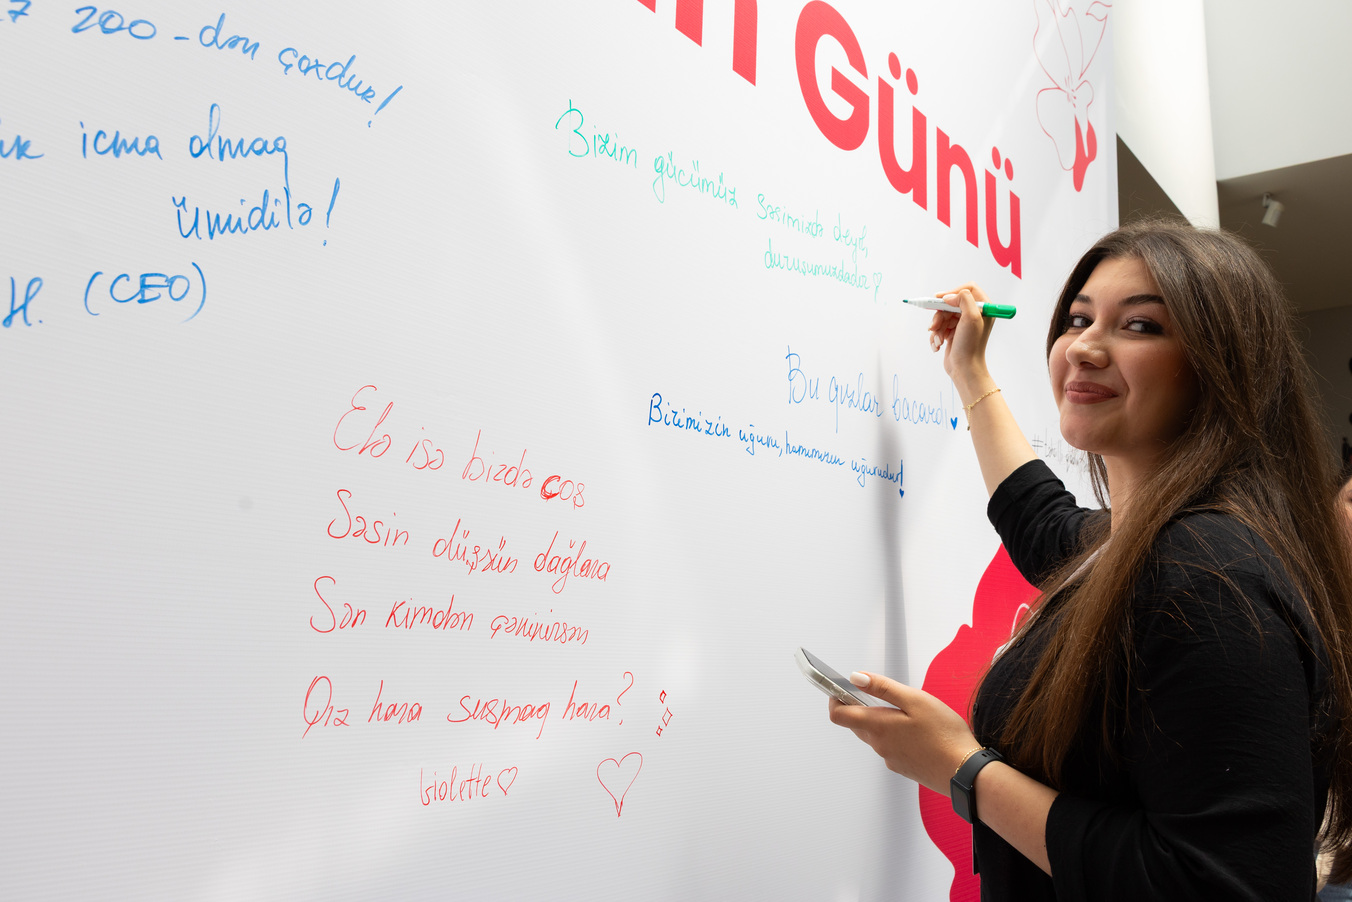 Günü
7 200-dən çoxdur!
icma olmaq
ümidilə!
H. (CEO)
Bizim gücümüz səsimizdə deyil,
duruşumuzdadır ♡
Bu qızlar bacardı!
Birimizin uğuru, hamımızın uğurudur!
Elə isə bizdə coş
Səsin düşsün dağlara
Sən kimdən çəkinirsən
Qız hara susmaq hara?
violette ♡